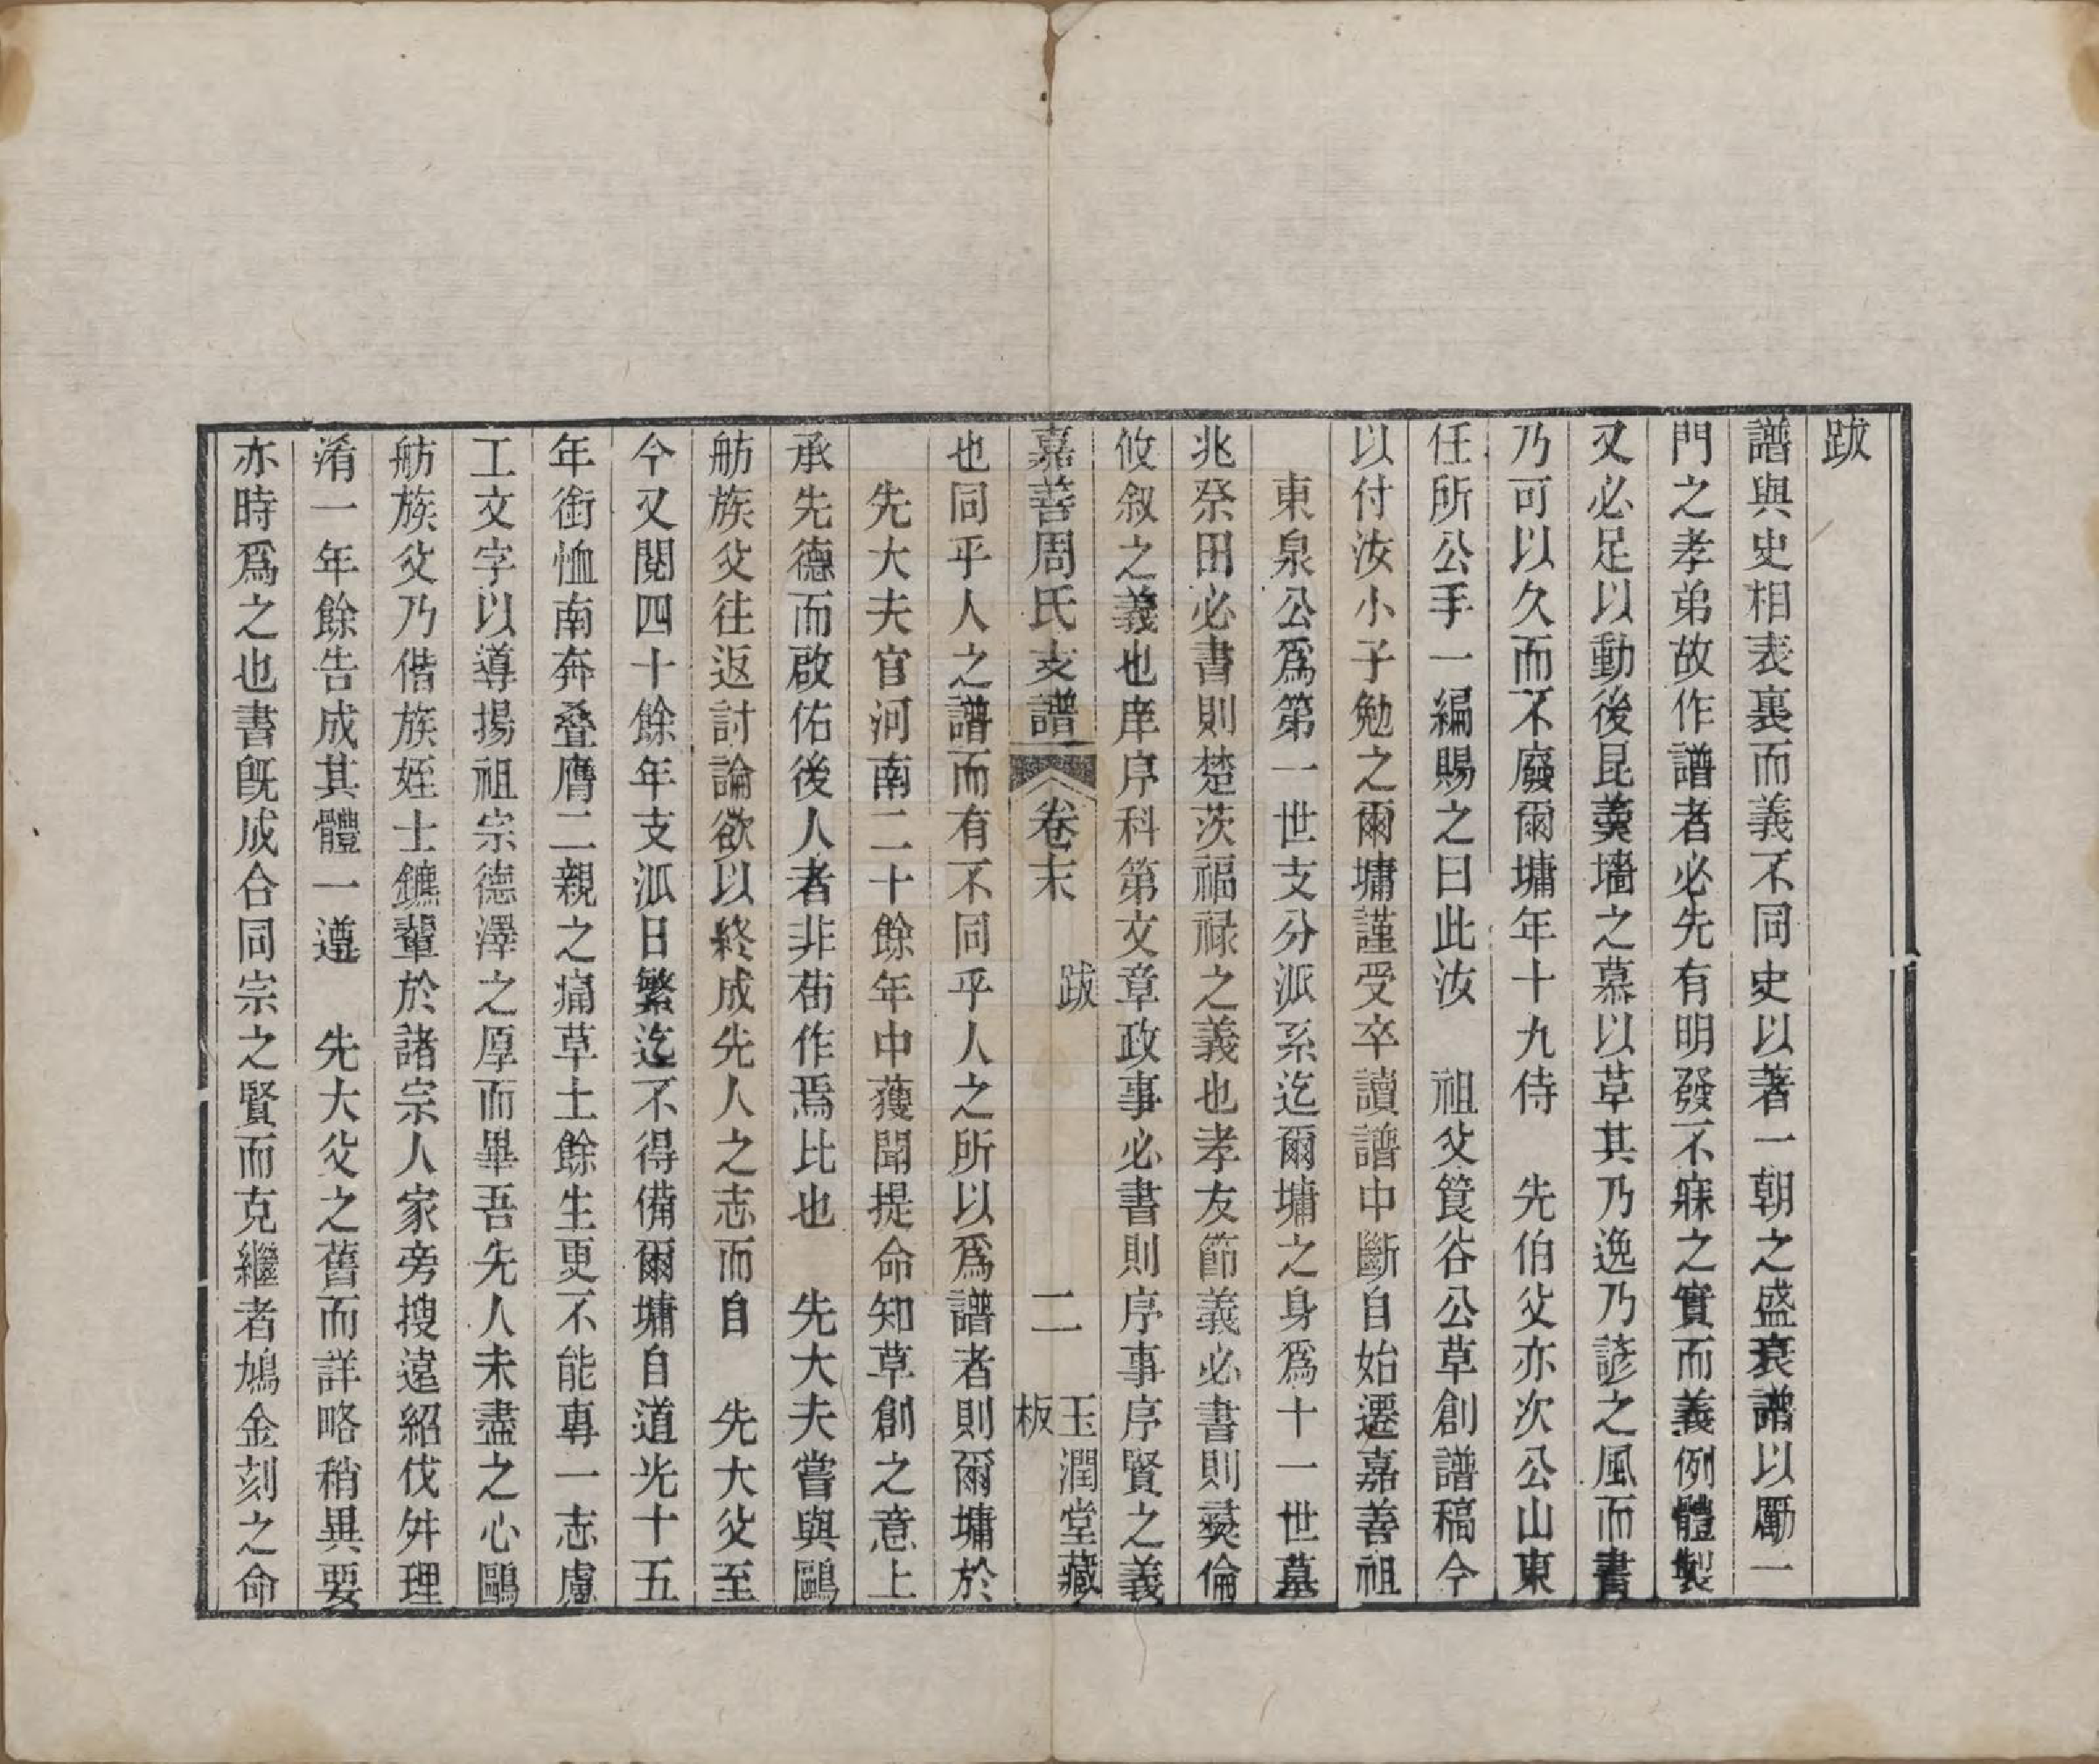 跋
譜與史相表裏而義不同史以著一朝之盛衰譜以勵一
門之孝弟故作譜者必先有明發不寐之實而義例體製
又必足以動後昆羹墻之慕以草其乃逸乃諺之風而書
乃可以久而不廢爾墉年十九侍　先伯父亦次公山東
任所公手一編賜之曰此汝　祖父篔谷公草創譜稿今
以付汝小子勉之爾墉謹受卒讀譜中斷自始遷嘉善祖
　東泉公爲第一世支分派系迄爾墉之身爲十一世墓
兆祭田必書則楚茨福禄之義也孝友節義必書則彝倫
攸叙之義也庠序科第文章政事必書則序事序賢之義
嘉善周氏支譜　卷末　跋　二　玉潤堂藏板
也同乎人之譜而有不同乎人之所以爲譜者則爾墉於
　先大夫官河南二十餘年中獲聞提命知草創之意上
承先德而啟佑後人者非苟作焉比也　先大夫嘗與鷗
舫族父往返討論欲以終成先人之志而自　先大父至
今又閱四十餘年支派日繁迄不得備爾墉自道光十五
年銜恤南奔叠膺二親之痛草土餘生更不能專一志慮
工文字以導揚祖宗德澤之厚而畢吾先人未盡之心鷗
舫族父乃偕族姪士鑣輩於諸宗人家旁搜遠紹伐舛理
淆一年餘告成其體一遵　先大父之舊而詳略稍異要
亦時爲之也書既成合同宗之賢而克繼者鳩金刻之命